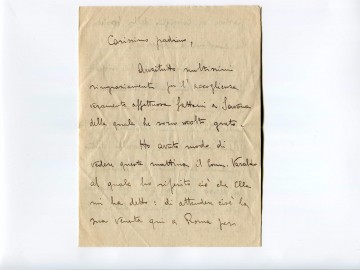 Carissimo padrino,
Anzitutto moltissimi
ringraziamenti per l'accoglienza
veramente affettuosa fattami a Savona
della quale le sono molto grato.
Ho avuto modo di
vedere questa mattina il Com.
al quale ho riferito ciò che Ella
mi ha detto: di attendere cioè la
sua venuta qui a Roma per